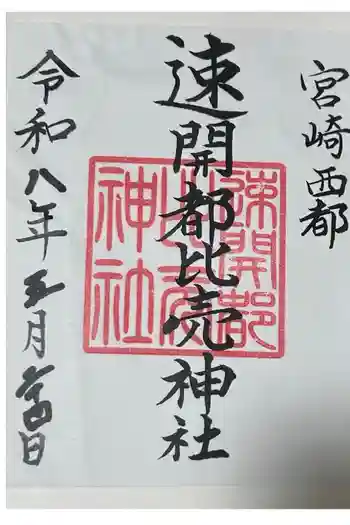 宮崎西都
速開都比売神社
速開都比売神社
令和八年五月吉日